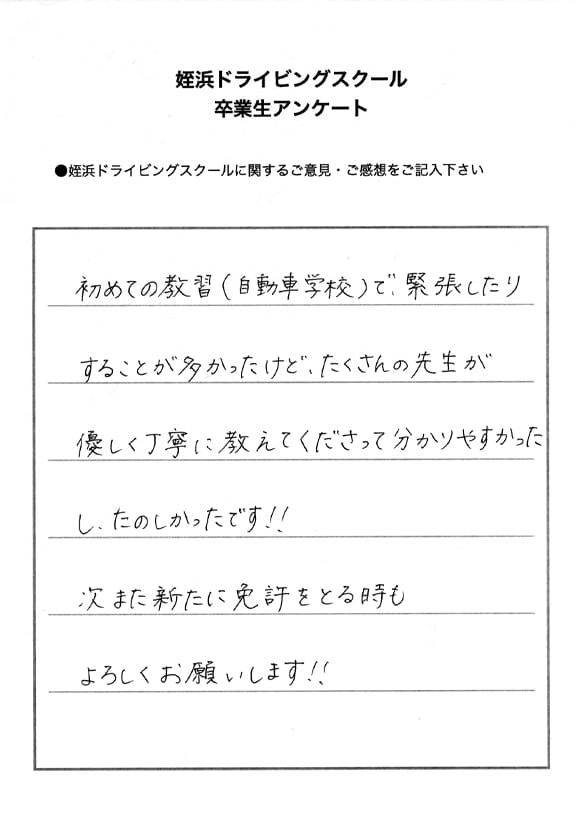 姪浜ドライビングスクール
卒業生アンケート
●姪浜ドライビングスクールに関するご意見・ご感想をご記入下さい
初めての教習(自動車学校)で、緊張したり
することが多かったけど、たくさんの先生が
優しく丁寧に教えてくださって分かりやすかった
し、たのしかったです!!
次また新たに免許をとる時も
よろしくお願いします!!